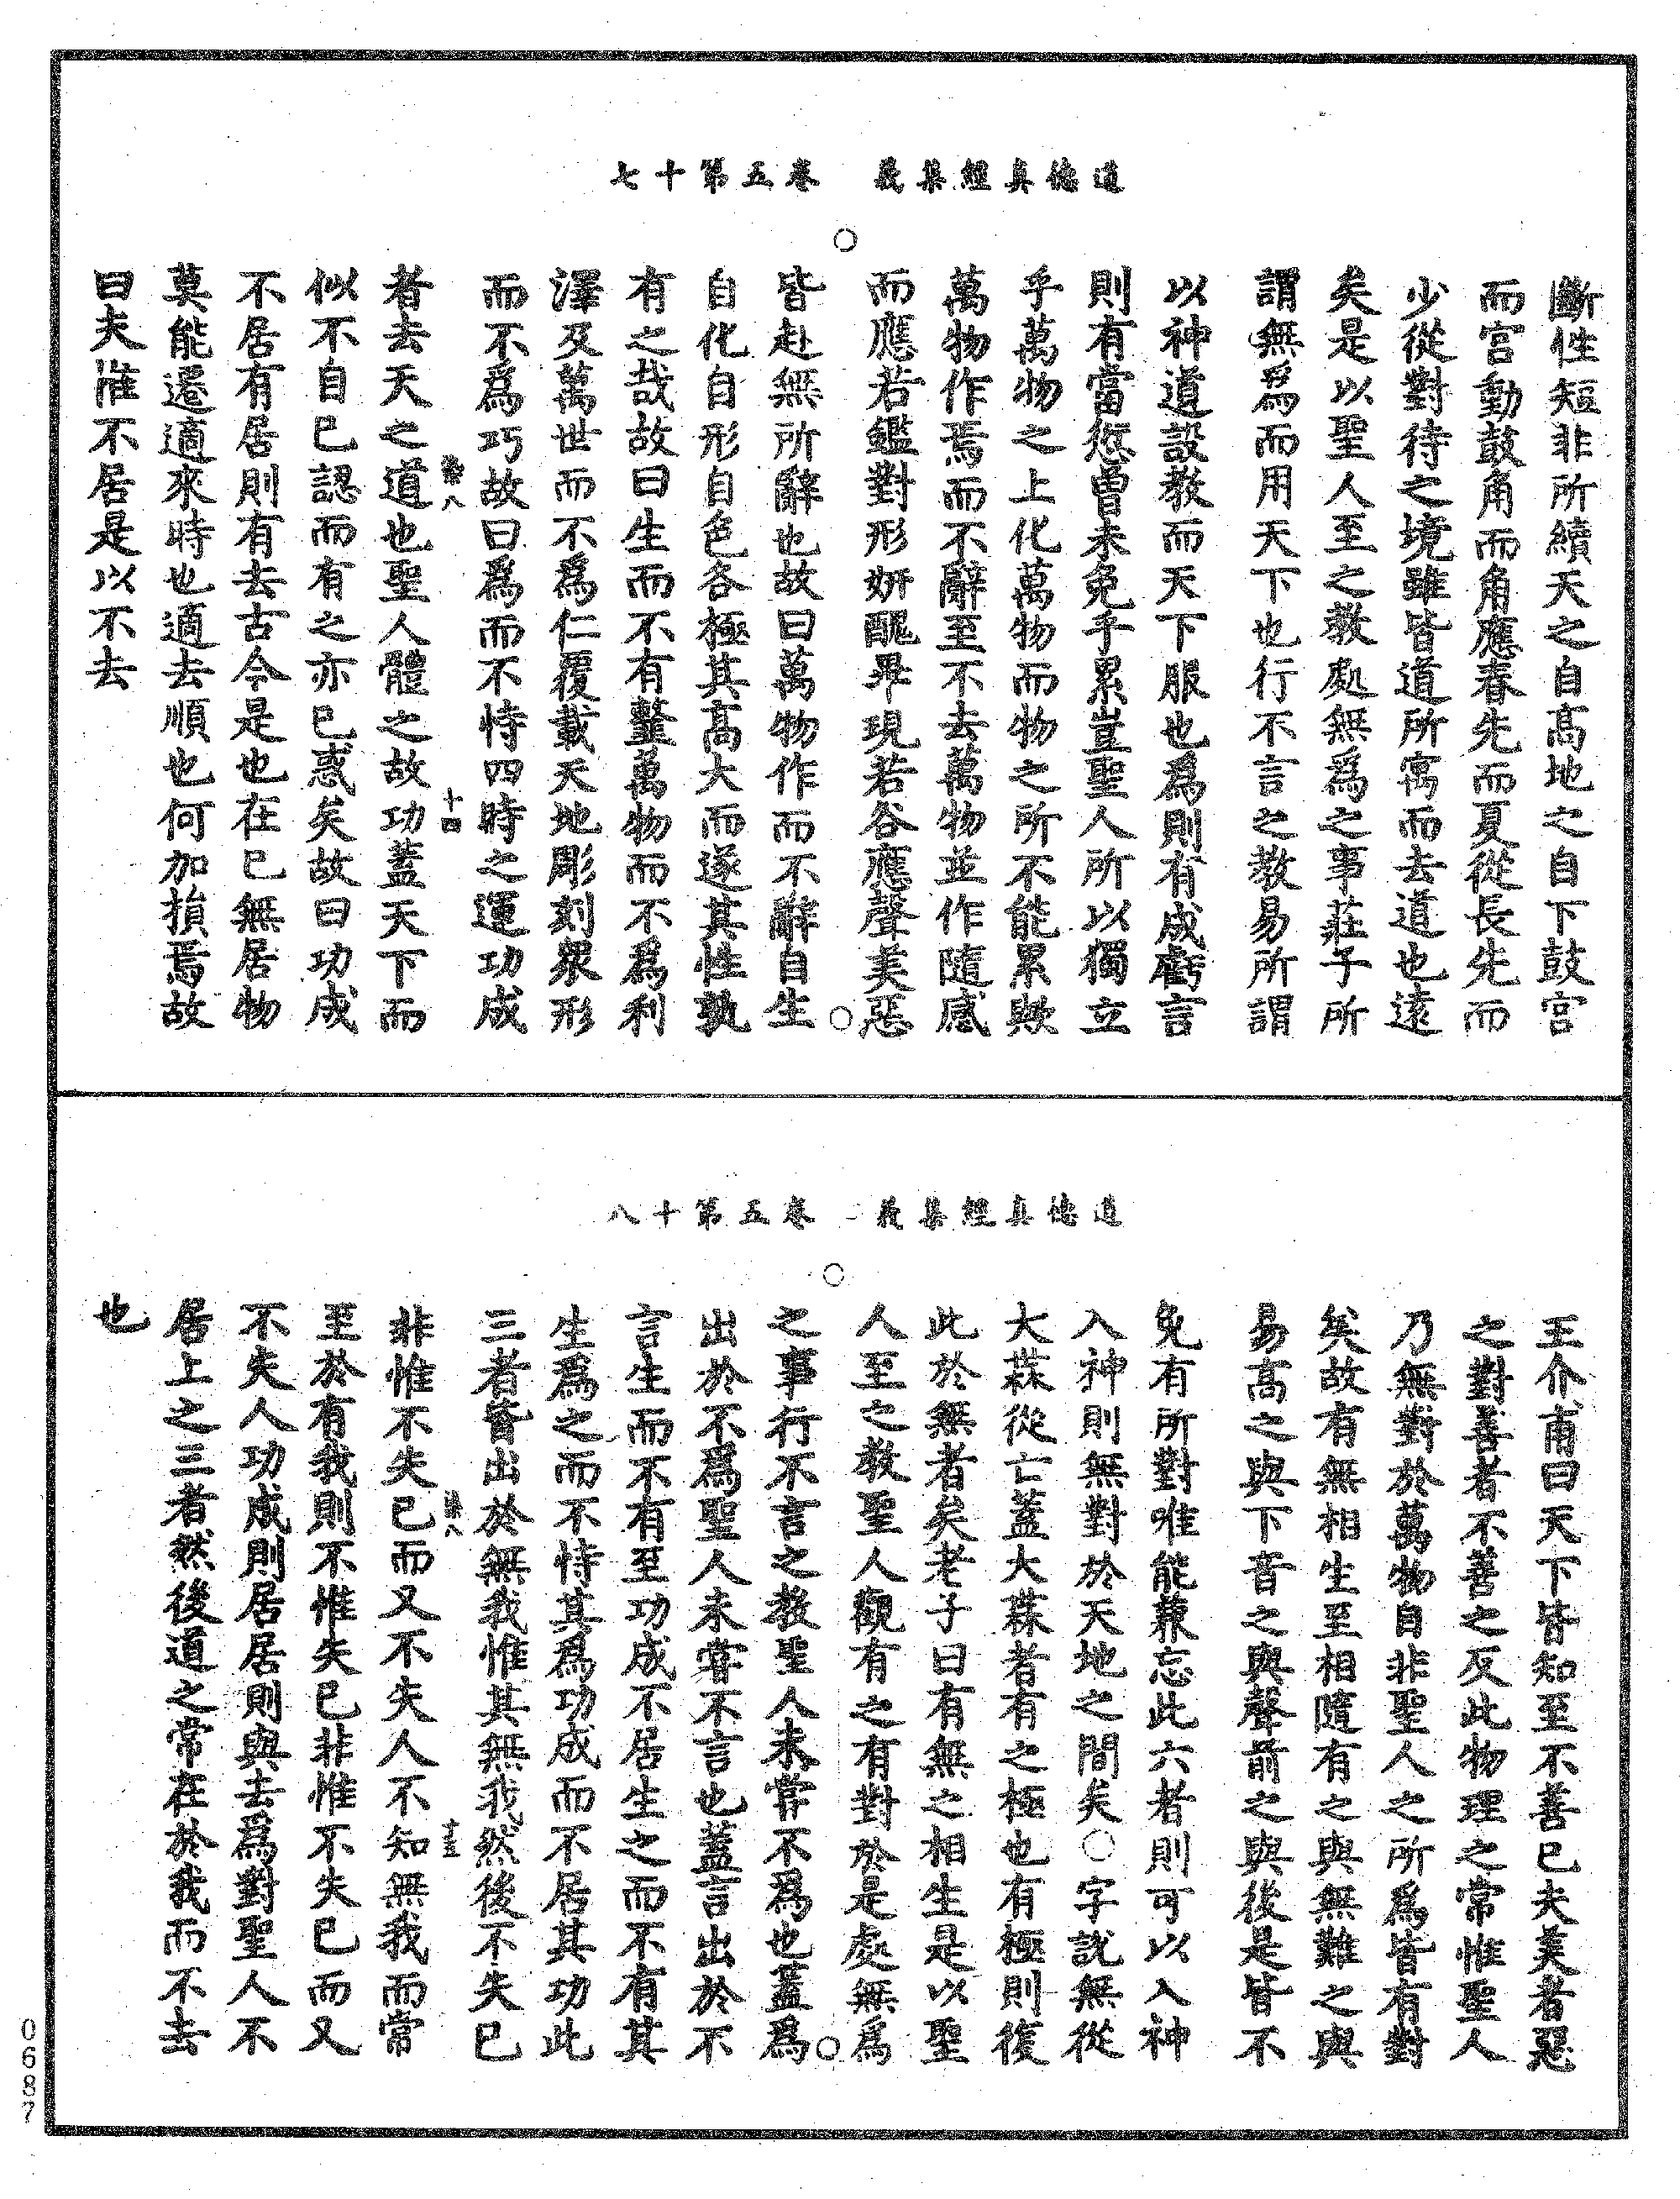 道德真經集義　卷五第十七
斷性短非所續天之自高地之自下鼓宮
而宮動鼓角而角應春先而夏從長先而
少從對待之境雖皆道所寓而去道也遠
矣是以聖人至之教處無爲之事莊子所
謂無爲而用天下也行不言之教易所謂
以神道設教而天下服也爲則有成虧言
則有當愆曾未免乎累豈聖人所以獨立
乎萬物之上化萬物而物之所不能累歟
萬物作焉而不辭至不去萬物並作隨感
而應若鑑對形妍醜畢現若谷應聲美惡
皆赴無所辭也故曰萬物作而不辭自生
自化自形自色各極其高大而遂其性孰
有之哉故曰生而不有鏨萬物而不爲利
澤及萬世而不爲仁覆載天地彫刻衆形
而不爲巧故曰爲而不恃四時之運功成
者去天之道也聖人體之故功蓋天下而
似不自已認而有之亦已惑矣故曰功成
不居有居則有去古今是也在已無居物
莫能遷適來時也適去順也何加損焉故
曰夫惟不居是以不去
八
十四
道德真經集義　卷五第十八
王介甫曰天下皆知至不善已夫美者惡
之對善者不善之反此物理之常惟聖人
乃無對於萬物自非聖人之所爲皆有對
矣故有無相生至相隨有之與無難之與
易高之與下音之與聲前之與後是皆不
免有所對唯能兼忘此六者則可以入神
入神則無對於天地之間矣○字說無從
大𣞤從亡蓋大𣞤者有之極也有極則復
此於無者矣老子曰有無之相生是以聖
人至之教聖人觀有之有對於是處無爲
之事行不言之教聖人未常不爲也蓋爲
出於不爲聖人未甞不言也蓋言出於不
言生而不有至功成不居生之而不有其
生爲之而不恃其爲功成而不居其功此
三者皆出於無我惟其無我然後不失已
非惟不失已而又不失人不知無我而常
至於有我則不惟失已非惟不失已而又
不失人功成則居居則與去爲對聖人不
居上之三者然後道之常在於我而不去
也
八
十五
0687